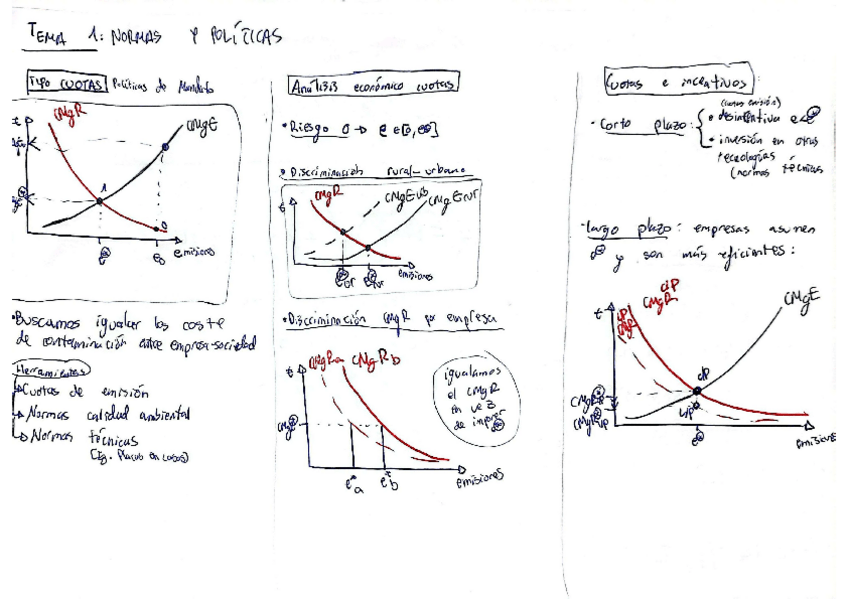 TEMA 1: NORMAS Y POLÍTICAS
TIPO CUOTAS Políticas de Mandato
€
CMgR
CMgE
1
0
e*
e0
emisiones
•Buscamos igualar los coste
de contaminación entre empresa-sociedad
Herramientas
Cuotas de emisión
Normas calidad ambiental
Normas técnicas
(Eg. Placas en casas)
Análisis económico cuotas
•Riesgo 0 → e e[0, e*]
•Discriminación rural-urbano
€
CMgR
CMgEub
CMgErur
e*ur
e*rur
emisiones
•Discriminación CMgR por empresa
€
CMgRa CMgRb
CMg*
e*a e*b emisiones
igualamos
el CMgR
en vez
de imponer
e*
Cuotas e incentivos:
- Corto plazo:
(menos emisión)
• desincentiva e<e*
• inversión en otras
tecnologías
(normas técnicas
- Largo plazo: empresas asumen
e* y son más eficientes:
€
CMgR
CMgR
CMgE
e*
emisiones